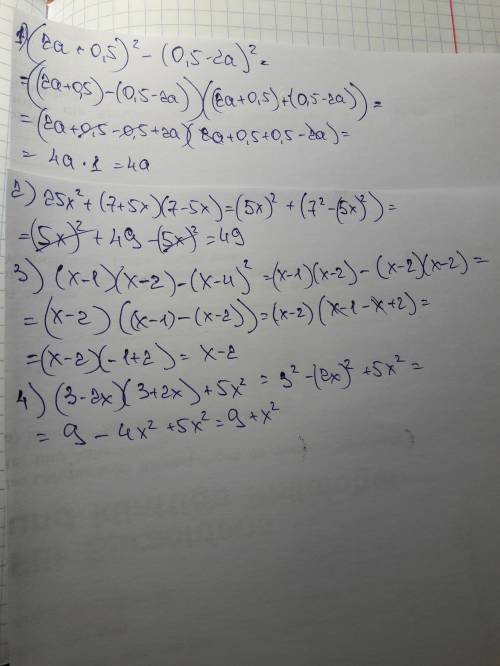 1) (2a+0,5)² - (0,5-2a)² =
= ((2a+0,5)-(0,5-2a)) ((2a+0,5)+(0,5-2a)) =
= (2a+0,5-0,5+2a)(2a+0,5+0,5-2a) =
= 4a · 1 = 4a
2) 25x² + (7+5x)(7-5x) = (5x)² + (7²-(5x)²) =
= (5x)² + 49 - (5x)² = 49
3) (x-1)(x-2)-(x-4)² = (x-1)(x-2)-(x-2)(x-2) =
= (x-2) ((x-1)-(x-2)) = (x-2) (x-1-x+2) =
= (x-2)(-1+2) = x-2
4) (3-2x)(3+2x)+5x² = 3²-(2x)²+5x² =
= 9 - 4x² + 5x² = 9+x²